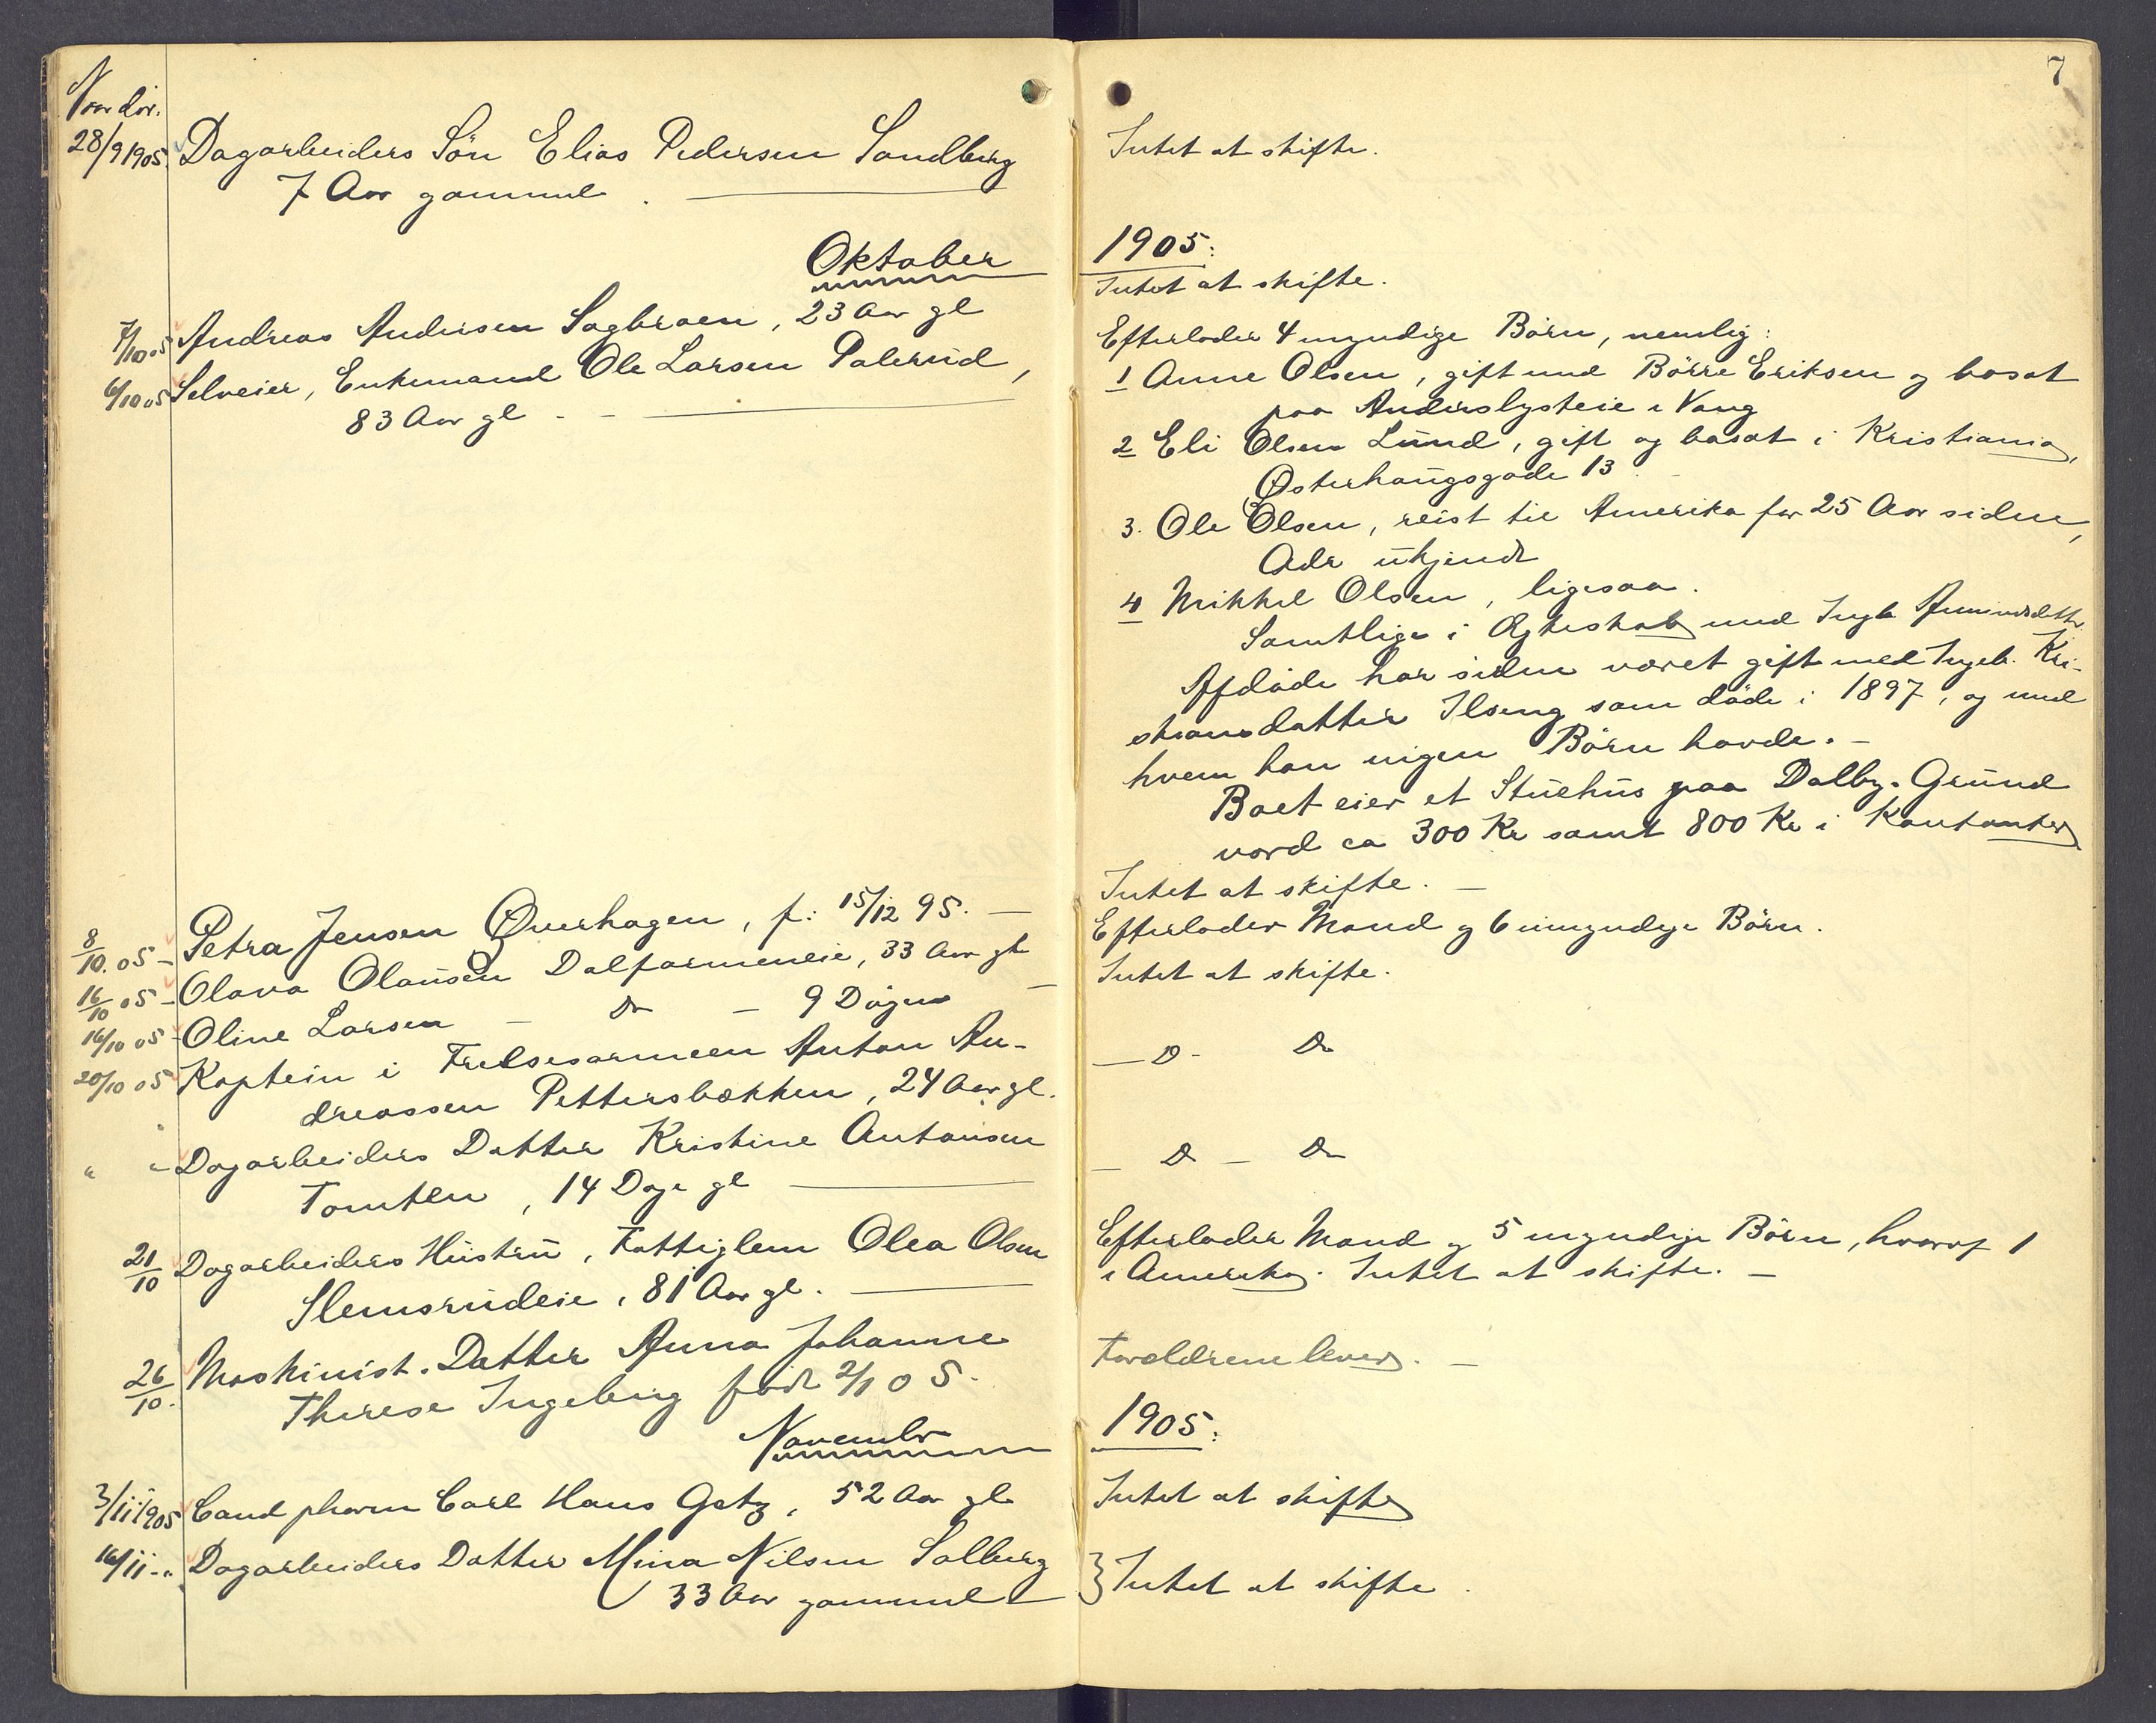 Naar dör.
28/9 1905 Dagarbeiders Sön Elias Pedersen Sandberg
7 Aar gammel.
Oktober
7/10 05 Andreas Andersen Sagbraen, 23 Aar gl
6/10 05 Selveier, Enkemand Ole Larsen Palerud,
83 Aar gl - -
8/10. 05 - Petra Jensen Överhagen, f: 15/12 95. -
16/10 05 - Olava Olausen Dalfarmeneie, 33 Aar gl
16/10 05 - Oline Larsen - Do - 9 Dögn -
20/10 05 Kaptein i Frelsesarmeen Anton An-
dreassen Pettersbækken, 24 Aar gl.
" " - Dagarbeiders Datter Kristine Antonsen
Tomten, 14 Dage gl
21/10 Dagarbeiders Hustru, Fattiglem Olea Olsen
Slemsrudeie, 81 Aar gl.
26/10. Maskinist. Datter Anna Johanne
Therese Ingeborg född 2/1 05.
November
3/11 1905 Cand pharm Carl Hans Gatz, 52 Aar gl
16/11 - " Dagarbeiders Datter Mina Nilsen Solberg
33 Aar gammel
7
Intet at skifte.
1905:
Intet at skifte.
Efterlader 4 myndige Börn, nemlig:
1 Anne Olsen, gift med Börre Eriksen og bosat
paa Anderslysteie i Vang
2 Eli Olsen Lund, gift og bosat i Kristiania,
Østerhaugsgade 13
3. Ole Olsen, reist til Amerika for 25 Aar siden,
Adr ukjendt
4 Mikkel Olsen, ligesaa.
Samtlige i Ægteskab med Ingb.
Afdöde har siden været gift med Ingeb. Kri-
stiansdatter Ilseng som döde i 1897, og med
hvem han ingen Börn havde. -
Boet eier et Stuehus paa Dalby-Grund
værd ca 300 Kr samt 800 Kr i Kontanter
Intet at skifte. -
Efterlader Mand og 6 umyndige Börn.
Intet at skifte.
- Do - Do
- Do - Do
Efterlader Mand og 5 myndige Börn, hvoraf 1
i Amerika. Intet at skifte. -
Forældrene lever. -
1905:
Intet at skifte
} Intet at skifte.